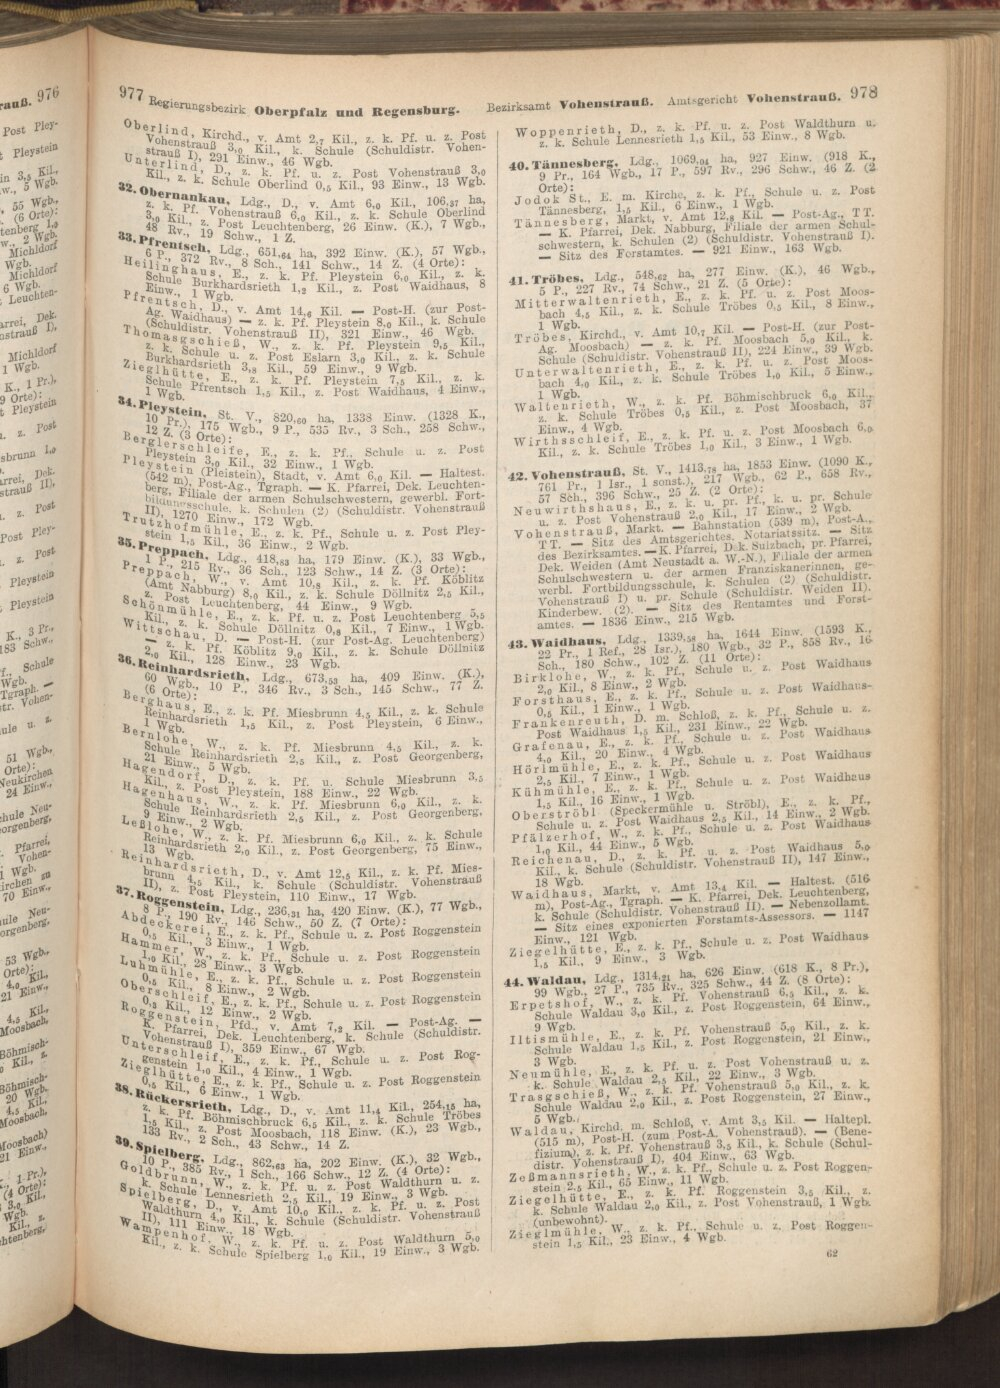 977 Regierungsbezirk Oberpfalz und Regensburg.
Bezirksamt Vohenstrauß. Amtsgericht Vohenstrauß. 978
Oberlind, Kirchd., v. Amt 2,7 Kil., z. k. Pf. u. z. Post
Vohenstrauß 3,0 Kil., k. Schule (Schuldistr. Vohen-
strauß I), 291 Einw., 46 Wgb.
Unterlind, D., z. k. Pf. u. z. Post Vohenstrauß 3,0
Kil., z. k. Schule Oberlind 0,5 Kil., 93 Einw., 13 Wgb.
32. Obernankau, Ldg., D., v. Amt 6,0 Kil., 106,37 ha,
z. k. Pf. Vohenstrauß 6,0 Kil., z. k. Schule Oberlind
3,0 Kil., z. Post Leuchtenberg, 26 Einw. (K.), 7 Wgb.,
48 Rv., 19 Schw., 1 Z.
33. Pfrentsch, Ldg., 651,64 ha, 392 Einw. (K.), 57 Wgb.,
6 P., 372 Rv., 8 Sch., 141 Schw., 14 Z. (4 Orte):
Heilinghaus, E., z. k. Pf. Pleystein 6,0 Kil., z. k.
Schule Burkhardsrieth 1,2 Kil., z. Post Waidhaus, 8
Einw., 1 Wgb.
Pfrentsch, D., v. Amt 14,6 Kil. — Post-H. (zur Post-
Ag. Waidhaus) — z. k. Pf. Pleystein 8,0 Kil., k. Schule
(Schuldistr. Vohenstrauß II), 321 Einw., 46 Wgb.
Thomasgschieß, W., z. k. Pf. Pleystein 9,5 Kil.,
z. k. Schule u. z. Post Eslarn 3,0 Kil., z. k. Schule
Burkhardsrieth 3,8 Kil., 59 Einw., 9 Wgb.
Zieglhütte, E., z. k. Pf. Pleystein 7,5 Kil., z. k.
Schule Pfrentsch 1,5 Kil., z. Post Waidhaus, 4 Einw.,
1 Wgb.
34. Pleystein, St. V., 820,60 ha, 1338 Einw. (1328 K.,
10 Pr.), 175 Wgb., 9 P., 535 Rv., 3 Sch., 258 Schw.,
12 Z. (3 Orte):
Berglerschleife, E., z. k. Pf., Schule u. z. Post
Pleystein 3,0 Kil., 32 Einw., 1 Wgb.
Pleystein (Pleistein), Stadt, v. Amt 6,0 Kil. — Haltest.
(542 m), Post-Ag., Tgraph. — K. Pfarrei, Dek. Leuchten-
berg, Filiale der armen Schulschwestern, gewerbl. Fort-
bildungsschule, k. Schulen (2) (Schuldistr. Vohenstrauß
II), 1270 Einw., 172 Wgb.
Trutzhofmühle, E., z. k. Pf., Schule u. z. Post Pley-
stein 1,5 Kil., 36 Einw., 2 Wgb.
35. Preppach, Ldg., 418,83 ha, 179 Einw. (K.), 33 Wgb.,
1 P., 215 Rv., 36 Sch., 123 Schw., 14 Z. (3 Orte):
Preppach, W., v. Amt 10,8 Kil., z. k. Pf. Köblitz
(Amt Nabburg) 8,0 Kil., z. k. Schule Döllnitz 2,5 Kil.,
z. Post Leuchtenberg, 44 Einw., 9 Wgb.
Schönmühle, E., z. k. Pf. u. z. Post Leuchtenberg 5,5
Kil., z. k. Schule Döllnitz 0,8 Kil., 7 Einw., 1 Wgb.
Wittschau, D. — Post-H. (zur Post-Ag. Leuchtenberg)
— z. k. Pf. Köblitz 9,0 Kil., z. k. Schule Döllnitz
2,0 Kil., 128 Einw., 23 Wgb.
36. Reinhardsrieth, Ldg., 673,53 ha, 409 Einw. (K.),
60 Wgb., 10 P., 346 Rv., 3 Sch., 145 Schw., 77 Z.
(6 Orte):
Berghaus, E., z. k. Pf. Miesbrunn 4,5 Kil., z. k. Schule
Reinhardsrieth 1,5 Kil., z. Post Pleystein, 6 Einw.,
1 Wgb.
Bernlohe, W., z. k. Pf. Miesbrunn 4,5 Kil., z. k.
Schule Reinhardsrieth 2,5 Kil., z. Post Georgenberg,
21 Einw., 5 Wgb.
Hagendorf, D., z. k. Pf. u. Schule Miesbrunn 3,5
Kil., z. Post Pleystein, 188 Einw., 22 Wgb.
Hagenhaus, W., z. k. Pf. Miesbrunn 6,0 Kil., z. k.
Schule Reinhardsrieth 2,5 Kil., z. Post Georgenberg,
9 Einw., 2 Wgb.
Leßlohe, W., z. k. Pf. Miesbrunn 6,0 Kil., z. k. Schule
Reinhardsrieth 2,0 Kil., z. Post Georgenberg, 75 Einw.,
13 Wgb.
Reinhardsrieth, D., v. Amt 12,5 Kil., z. k. Pf. Mies-
brunn 4,5 Kil., k. Schule (Schuldistr. Vohenstrauß
II), z. Post Pleystein, 110 Einw., 17 Wgb.
37. Roggenstein, Ldg., 236,31 ha, 420 Einw. (K.), 77 Wgb.,
8 P., 190 Rv., 146 Schw., 50 Z. (7 Orte):
Abdeckerei, E., z. k. Pf., Schule u. z. Post Roggenstein
0,5 Kil., 3 Einw., 1 Wgb.
Hammer, W., z. k. Pf., Schule u. z. Post Roggenstein
1,0 Kil., 28 Einw., 3 Wgb.
Luhmühle, E., z. k. Pf., Schule u. z. Post Roggenstein
0,5 Kil., 8 Einw., 2 Wgb.
Oberschleif, E., z. k. Pf., Schule u. z. Post Roggenstein
0,3 Kil., 12 Einw., 2 Wgb.
Roggenstein, Pfd., v. Amt 7,2 Kil. — Post-Ag. —
K. Pfarrei, Dek. Leuchtenberg, k. Schule (Schuldistr.
Vohenstrauß I), 359 Einw., 67 Wgb.
Unterschleif, E., z. k. Pf., Schule u. z. Post Rog-
genstein 1,0 Kil., 4 Einw., 1 Wgb.
Zieglhütte, E., z. k. Pf., Schule u. z. Post Roggenstein
0,5 Kil., 6 Einw., 1 Wgb.
38. Rückersrieth, Ldg., D., v. Amt 11,4 Kil., 254,15 ha,
z. k. Pf. Böhmischbruck 6,5 Kil., z. k. Schule Tröbes
1,5 Kil., z. Post Moosbach, 118 Einw. (K.), 23 Wgb.,
133 Rv., 2 Sch., 43 Schw., 14 Z.
39. Spielberg, Ldg., 862,63 ha, 202 Einw. (K.), 32 Wgb.,
10 P., 385 Rv., 1 Sch., 166 Schw., 12 Z. (4 Orte):
Goldbrunn, W., z. k. Pf. u. z. Post Waldthurn u. z.
k. Schule Lennesrieth 2,5 Kil., 19 Einw., 3 Wgb.
Spielberg, D., v. Amt 10,0 Kil., z. k. Pf. u. z. Post
Waldthurn 4,0 Kil., k. Schule (Schuldistr. Vohenstrauß
II), 111 Einw., 18 Wgb.
Wampenhof, W., z. k. Pf. u. z. Post Waldthurn 5,0
Kil., z. k. Schule Spielberg 1,0 Kil., 19 Einw., 3 Wgb.
Woppenrieth, D., z. k. Pf. u. z. Post Waldthurn u.
z. k. Schule Lennesrieth 1,5 Kil., 53 Einw., 8 Wgb.
40. Tännesberg, Ldg., 1069,04 ha, 927 Einw. (918 K.,
9 Pr., 164 Wgb., 17 P., 597 Rv., 296 Schw., 46 Z. (2
Orte):
Jodok St., E. m. Kirche, z. k. Pf., Schule u. z. Post
Tännesberg, 1,5 Kil., 6 Einw., 1 Wgb.
Tännesberg, Markt, v. Amt 12,8 Kil. — Post-Ag., TT.
— K. Pfarrei, Dek. Nabburg, Filiale der armen Schul-
schwestern, k. Schulen (2) (Schuldistr. Vohenstrauß I).
— Sitz des Forstamtes. — 921 Einw., 163 Wgb.
41. Tröbes, Ldg., 548,62 ha, 277 Einw. (K.), 46 Wgb.,
5 P., 227 Rv., 74 Schw., 21 Z. (5 Orte):
Mitterwaltenrieth, E., z. k. Pf. u. z. Post Moos-
bach 4,5 Kil., z. k. Schule Tröbes 0,5 Kil., 8 Einw.,
1 Wgb.
Tröbes, Kirchd., v. Amt 10,7 Kil. — Post-H. (zur Post-
Ag. Moosbach) — z. k. Pf. Moosbach 5,0 Kil., k.
Schule (Schuldistr. Vohenstrauß II), 224 Einw., 39 Wgb.
Unterwaltenrieth, E., z. k. Pf. u. z. Post Moos-
bach 4,0 Kil., z. k. Schule Tröbes 1,0 Kil., 5 Einw.,
1 Wgb.
Waltenrieth, W., z. k. Pf. Böhmischbruck 6,0 Kil.,
z. k. Schule Tröbes 0,5 Kil., z. Post Moosbach, 37
Einw., 4 Wgb.
Wirthsschleif, E., z. k. Pf. u. z. Post Moosbach 6,0
Kil., z. k. Schule Tröbes 1,0 Kil., 3 Einw., 1 Wgb.
42. Vohenstrauß, St. V., 1413,78 ha, 1853 Einw. (1090 K.,
761 Pr., 1 Isr., 1 sonst.), 217 Wgb., 62 P., 658 Rv.,
57 Sch., 396 Schw., 25 Z. (2 Orte):
Neuwirthshaus, E., z. k. u. pr. Pf., k. u. pr. Schule
u. z. Post Vohenstrauß 2,0 Kil., 17 Einw., 2 Wgb.
Vohenstrauß, Markt. — Bahnstation (539 m), Post-A.,
TT. — Sitz des Amtsgerichtes. Notariatssitz. — Sitz
des Bezirksamtes. — K. Pfarrei, Dek. Sulzbach, pr. Pfarrei,
Dek. Weiden (Amt Neustadt a. W.-N.), Filiale der armen
Schulschwestern u. der armen Franziskanerinnen, ge-
werbl. Fortbildungsschule, k. Schulen (2) (Schuldistr.
Vohenstrauß I) u. pr. Schule (Schuldistr. Weiden II).
Kinderbew. (2). — Sitz des Rentamtes und Forst-
amtes. — 1836 Einw., 215 Wgb.
43. Waidhaus, Ldg., 1339,58 ha, 1644 Einw. (1593 K.,
22 Pr., 1 Ref., 28 Isr.), 180 Wgb., 32 P., 858 Rv., 16
Sch., 180 Schw., 102 Z. (11 Orte):
Birklohe, W., z. k. Pf., Schule u. z. Post Waidhaus
2,0 Kil., 8 Einw., 2 Wgb.
Forsthaus, E., z. k. Pf., Schule u. z. Post Waidhaus
0,5 Kil., 1 Einw., 1 Wgb.
Frankenreuth, D. m. Schloß, z. k. Pf., Schule u. z.
Post Waidhaus 1,5 Kil., 231 Einw., 22 Wgb.
Grafenau, E., z. k. Pf., Schule u. z. Post Waidhaus
4,0 Kil., 20 Einw., 4 Wgb.
Hörlmühle, E., z. k. Pf., Schule u. z. Post Waidhaus
2,5 Kil., 7 Einw., 1 Wgb.
Kühmühle, E., z. k. Pf., Schule u. z. Post Waidhaus
1,5 Kil., 16 Einw., 1 Wgb.
Oberströbl (Speckermühle u. Ströbl), E., z. k. Pf.,
Schule u. z. Post Waidhaus 2,5 Kil., 14 Einw., 2 Wgb.
Pfälzerhof, W., z. k. Pf., Schule u. z. Post Waidhaus
1,0 Kil., 44 Einw., 5 Wgb.
Reichenau, D., z. k. Pf. u. z. Post Waidhaus 5,0
Kil., k. Schule (Schuldistr. Vohenstrauß II), 147 Einw.,
18 Wgb.
Waidhaus, Markt, v. Amt 13,4 Kil. — Haltest. (516
m), Post-Ag., Tgraph. — K. Pfarrei, Dek. Leuchtenberg,
k. Schule (Schuldistr. Vohenstrauß II). — Nebenzollamt.
— Sitz eines exponierten Forstamts-Assessors. — 1147
Einw., 121 Wgb.
Ziegelhütte, E., z. k. Pf., Schule u. z. Post Waidhaus
1,5 Kil., 9 Einw., 3 Wgb.
44. Waldau, Ldg., 1314,21 ha, 626 Einw. (618 K., 8 Pr.),
99 Wgb., 27 P., 735 Rv., 325 Schw., 44 Z. (8 Orte):
Erpetshof, W., z. k. Pf. Vohenstrauß 6,5 Kil., z. k.
Schule Waldau 3,0 Kil., z. Post Roggenstein, 64 Einw.,
9 Wgb.
Iltismühle, E., z. k. Pf. Vohenstrauß 5,0 Kil., z. k.
Schule Waldau 1,5 Kil., z. Post Roggenstein, 21 Einw.,
3 Wgb.
Neumühle, E., z. k. Pf. u. z. Post Vohenstrauß u. z.
k. Schule Waldau 2,5 Kil., 22 Einw., 3 Wgb.
Trasgschieß, W., z. k. Pf. Vohenstrauß 5,0 Kil., z. k.
Schule Waldau 2,0 Kil., z. Post Roggenstein, 27 Einw.,
5 Wgb.
Waldau, Kirchd. m. Schloß, v. Amt 3,5 Kil. — Haltepl.
(515 m), Post-H. (zum Post-A. Vohenstrauß). — (Bene-
fizium), z. k. Pf. Vohenstrauß 3,5 Kil., k. Schule (Schul-
distr. Vohenstrauß I), 404 Einw., 63 Wgb.
Zeßmannsrieth, W., z. k. Pf., Schule u. z. Post Roggen-
stein 2,5 Kil., 65 Einw., 11 Wgb.
Ziegelhütte, E., z. k. Pf. Roggenstein 3,5 Kil., z.
k. Schule Waldau 2,0 Kil., z. Post Vohenstrauß, 1 Wgb.
(unbewohnt).
Zieglmühle, W., z. k. Pf., Schule u. z. Post Roggen-
stein 1,5 Kil., 23 Einw., 4 Wgb.
62